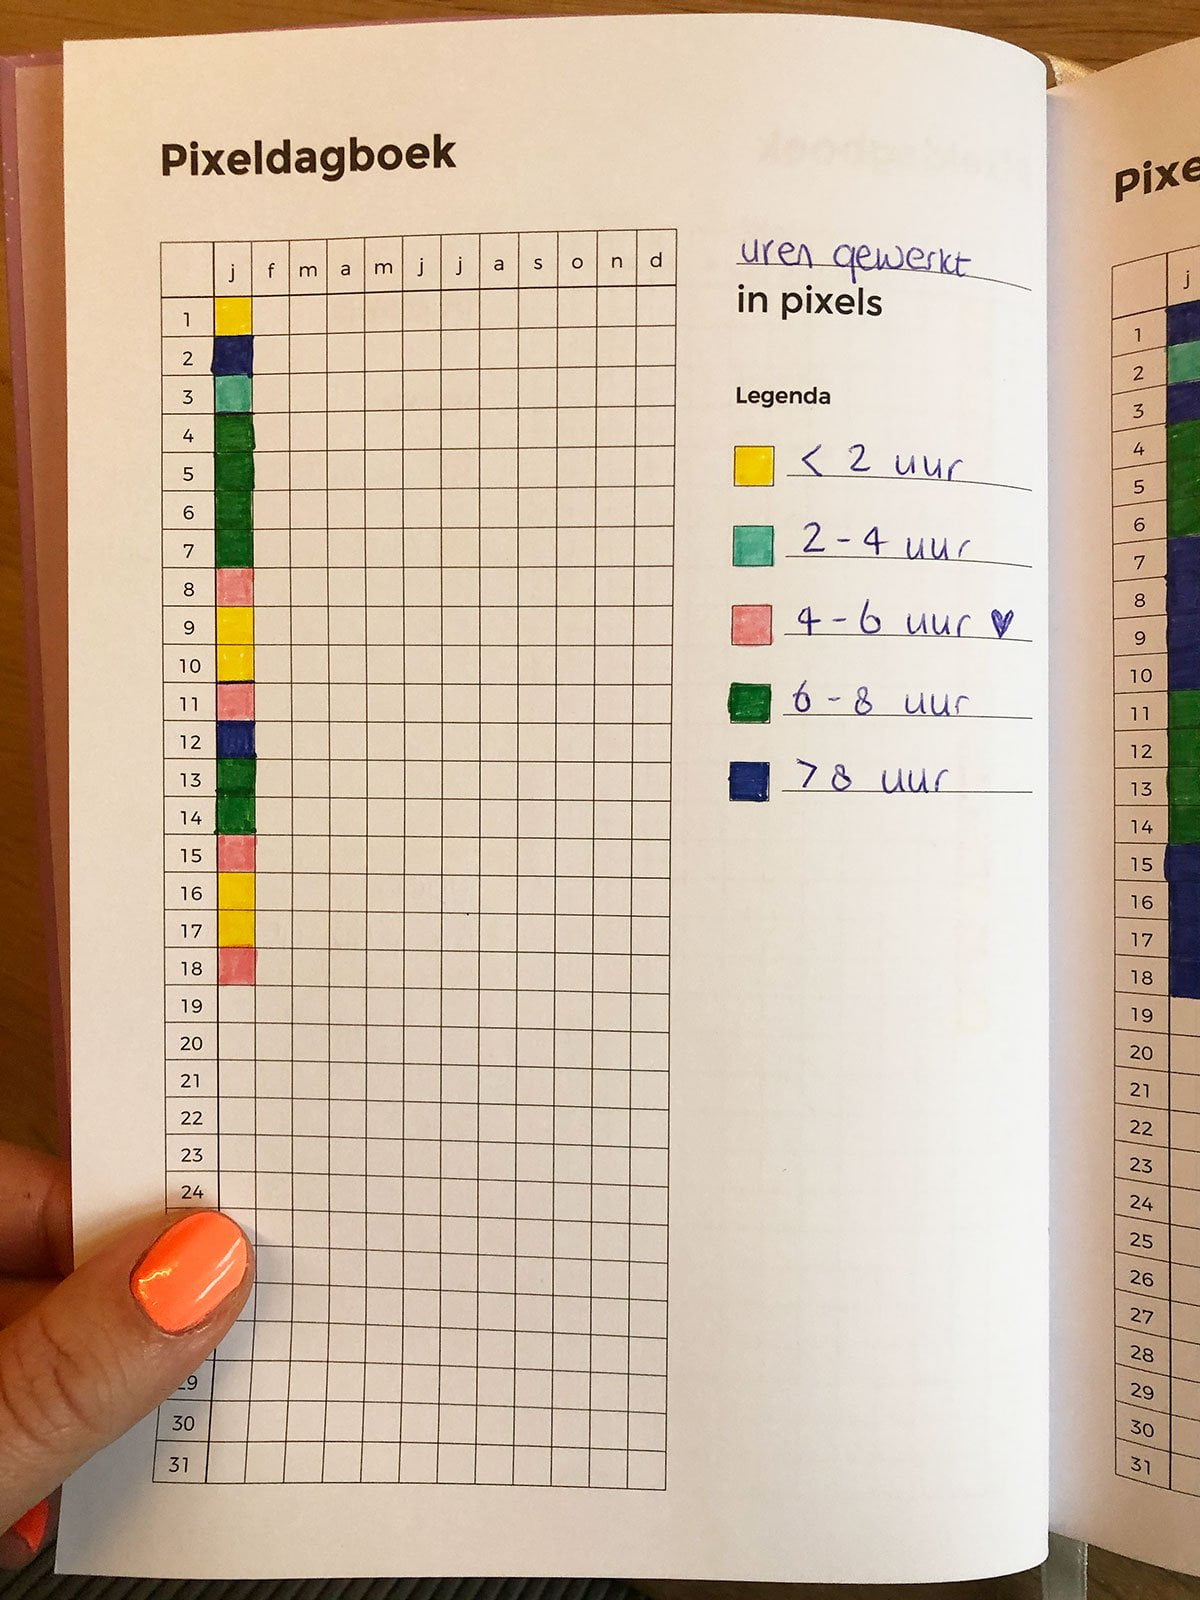 Pixeldagboek
j f m a m j j a s o n d
1
2
3
4
5
6
7
8
9
10
11
12
13
14
15
16
17
18
19
20
21
22
23
24
29
30
31
uren gewerkt
in pixels
Legenda
< 2 uur
2 - 4 uur
4 - 6 uur ♥
6 - 8 uur
> 8 uur
Pixe
j
1
2
3
4
5
6
7
8
9
10
11
12
13
14
15
16
17
18
19
20
21
22
23
24
25
26
27
28
29
30
31